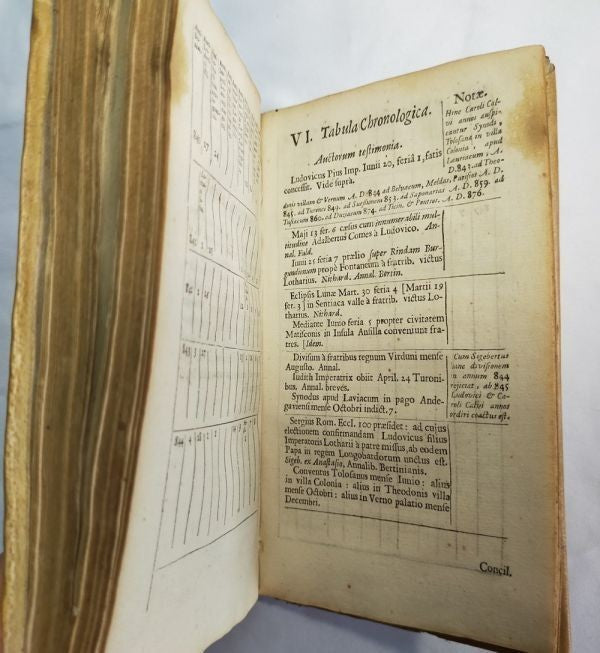 VI. Tabula Chronologica.
Auctorum testimonia.
Ludovicus Pius Imp. Iunii 20, feriâ 1, fatis
concessit. Vide suprà.
Notæ.
Hinc Caroli Cal-
vi annos auspi-
cantur Synodi,
Tolosana in villa
Colonia, apud
Lauriacum, A.
D. 843. ad Theo-
donis villam & Vernum A. D. 844 ad Belvacum, Meldas, Parisios A. D.
845. ad Turones 849. ad Suessionem 853. ad Saponarias A. D. 859. ad
Tusiacum 860. ad Duziacum 874. ad Ticin. & Pontig. A. D. 876.
Maji 13 fer. 6 cæsus cum innumerabili mul-
titudine Adalbertus Comes à Ludovico. An-
nal. Fuld.
Iunii 25 feria 7 prælio super Rindam Bur-
gundionum propè Fontaneum à fratrib. victus
Lotharius. Nithard. Annal. Bertin.
Eclipsis Lunæ Mart. 30 feria 4 [Martii 19
fer. 3] in Sentiaca valle à fratrib. victus Lo-
tharius. Nithard.
Mediante Iunio feria 5 propter civitatem
Matisconis in Insula Ansilla conveniunt fra-
tres. [Idem.
Divisum à fratribus regnum Virduni mense
Augusto. Annal.
Iudith Imperatrix obiit April. 24 Turoni-
bus. Annal. breves.
Synodus apud Laviacum in pago Ande-
gaviensi mense Octobri indict. 7.
Cum Sigebertus
hanc divisionem
in annum 844
rejiciat, ab 845
Ludovici & Ca-
roli Calvi annos
ordiri coactus est.
Sergius Rom. Eccl. 100 præsidet: ad cujus
electionem confirmandam Ludovicus filius
Imperatoris Lotharii à patre missus, ab eodem
Papa in regem Longobardorum unctus est.
Sigeb. ex Anastasio, Annalib. Bertinianis.
Conventus Tolosanus mense Iunio: alius
in villa Colonia: alius in Theodonis villa
mense Octobri: alius in Verno palatio mense
Decembri.
Concil.